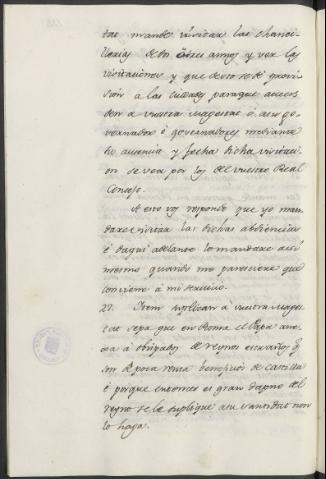 tad mande visitar las Chanci-
llerias de dos à tres annos y ver las
visitaciones y que desto se dé provi-
sion à las ciudades paraque acuer-
den a vuestra Magestad ó a su go-
vernador ó governadores mediante
su ausencia y fecha dicha visitaci-
on se vea por los del vuestro Real
Consejo.
A esto vos respondo que yo man-
daré visitar las dichas abdiencias
é daqui adelante lo mandaré assi
mesmo quando me paresciere que
conviene á mi servicio.
27. Item suplican á vuestra Mages-
tad sepa que en Roma el Papa
à obispados de reynos estraños q̃
son de poca renta beneficios de Castilla
é porque entonces es gran dapno del
reyno se le suplique a su santidad non
lo haga.